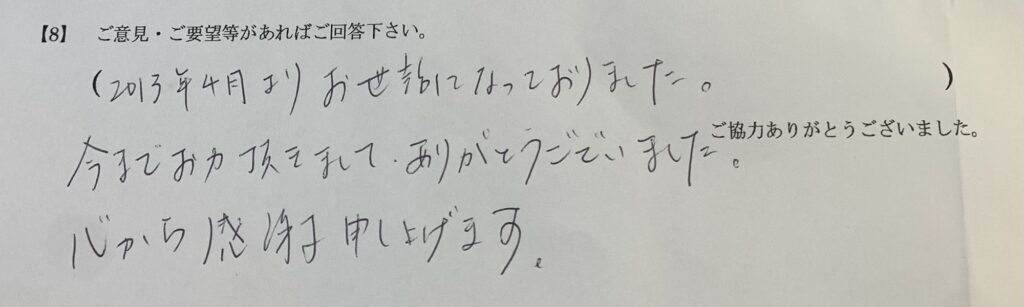 【8】 ご意見・ご要望等があればご回答下さい。
(2013年4月より お世話になっておりました。)
ご協力ありがとうございました。
今までお力頂きまして、ありがとうございました。
心から感謝申し上げます。